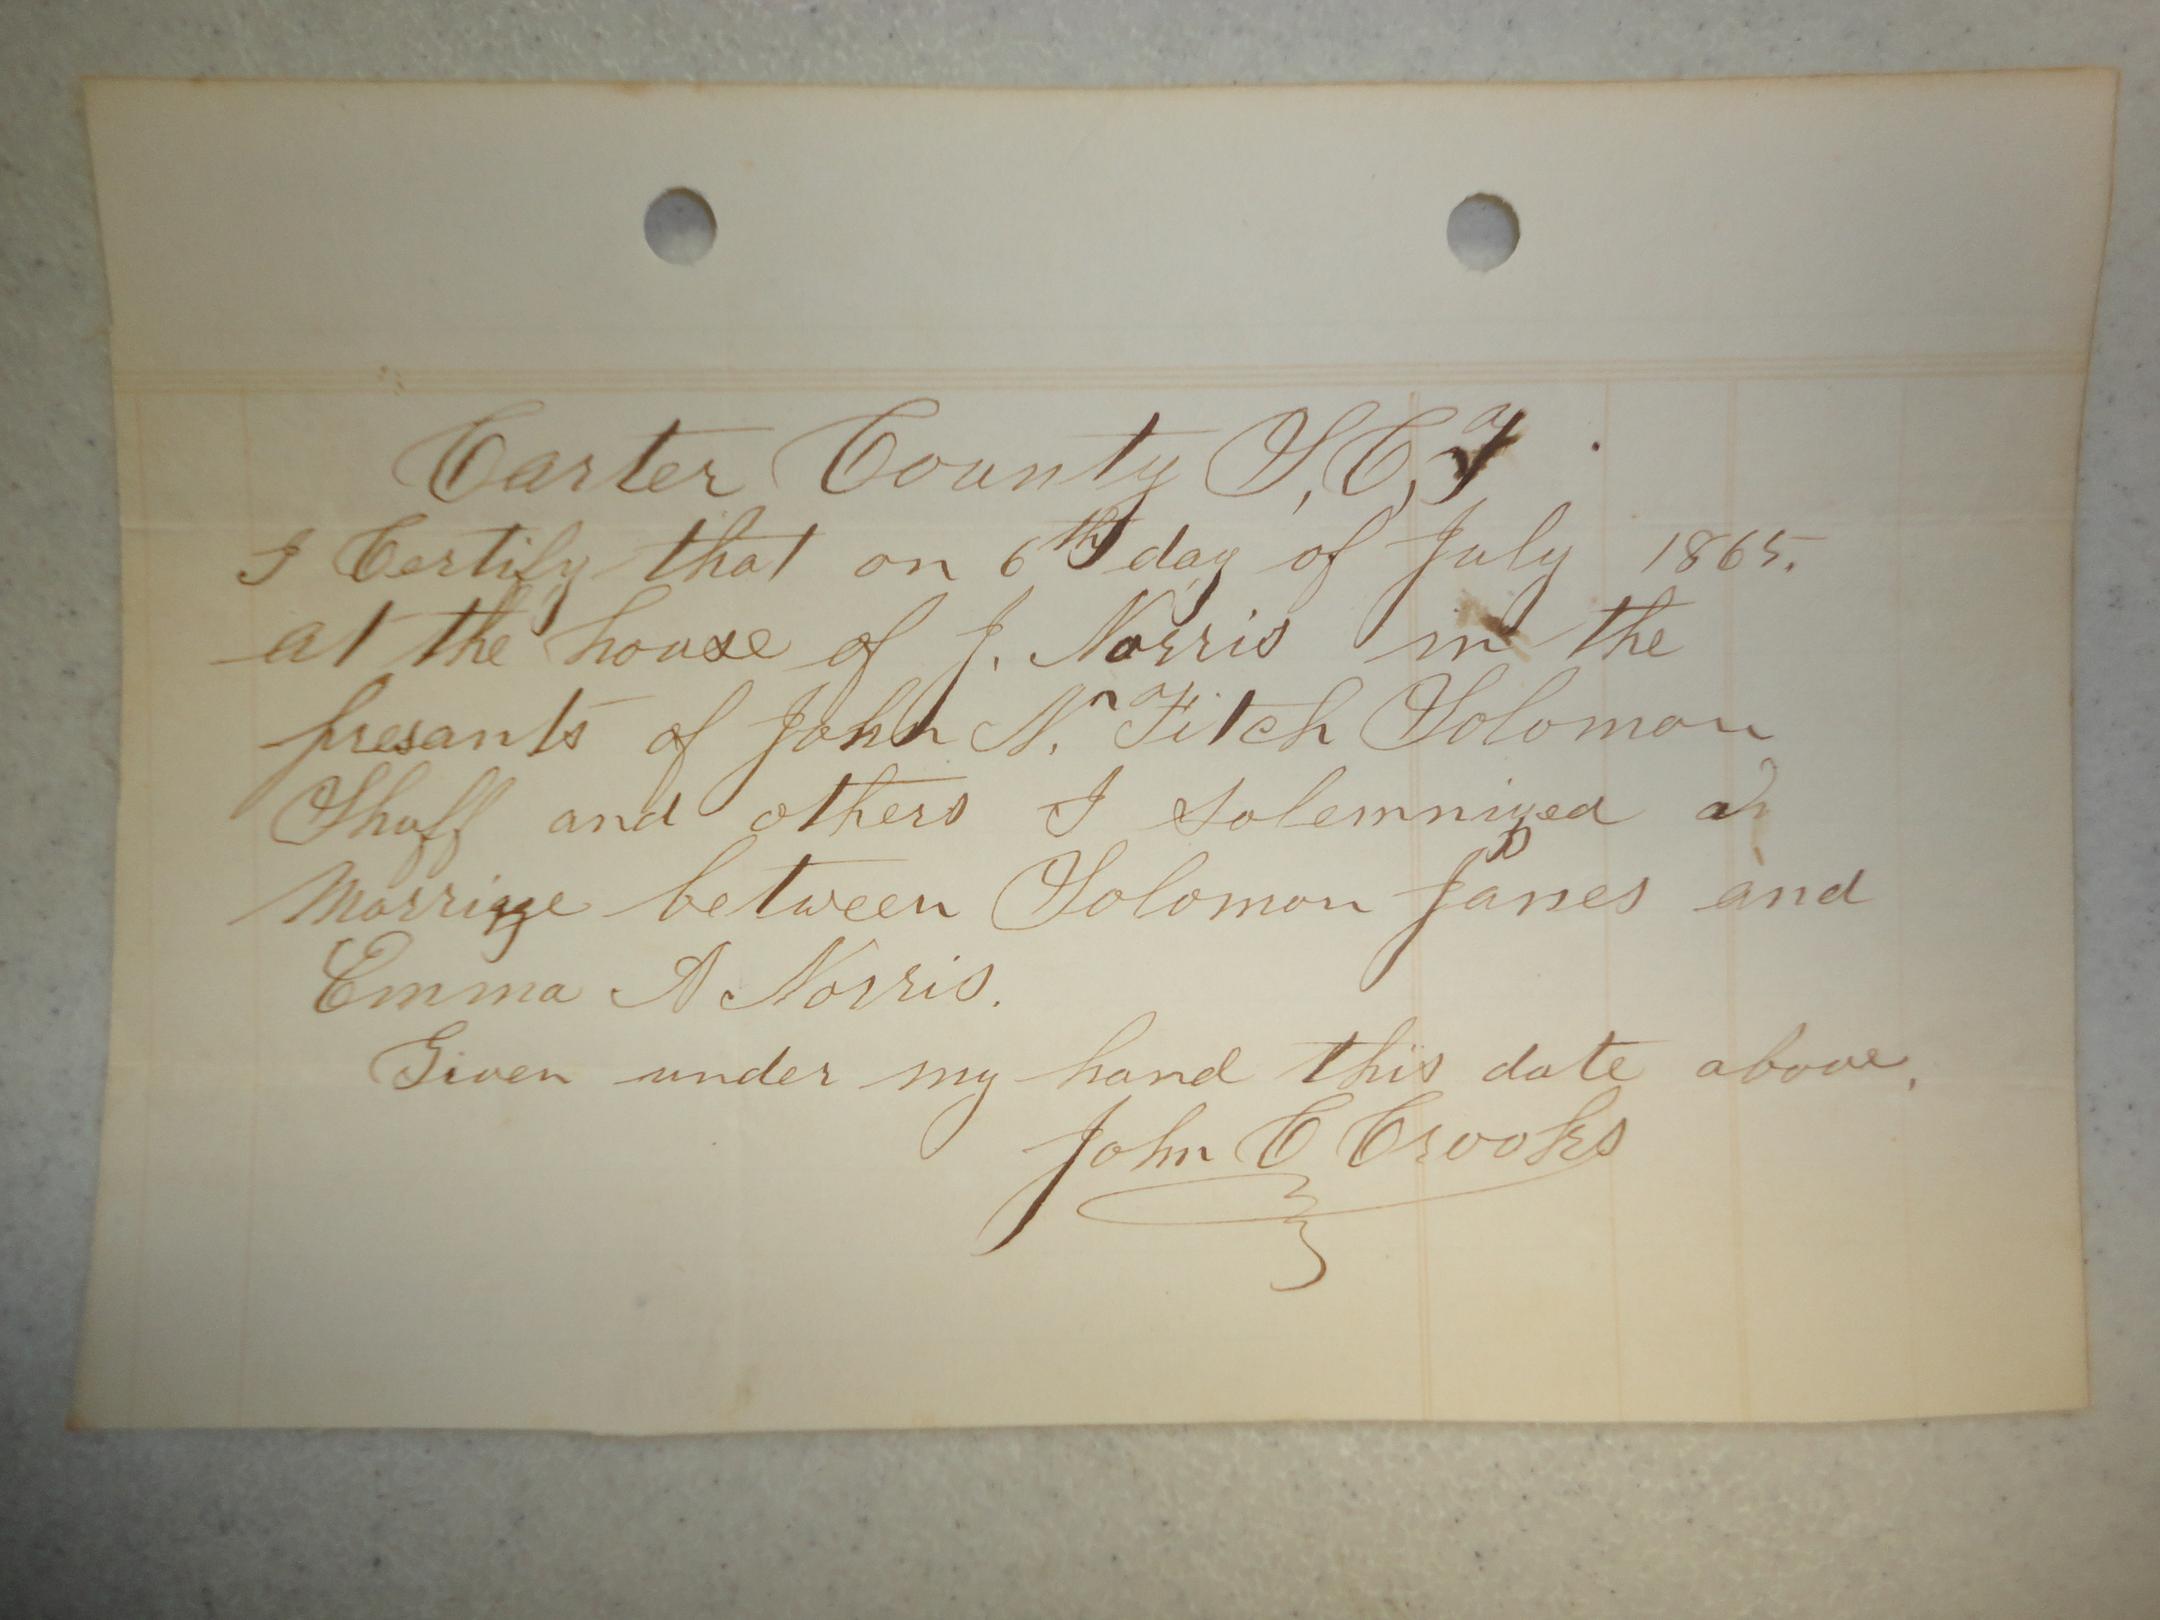 Carter County S, C, T
I Certify that on 6th day of July 1865.
at the house of J. Norris in the
presants of John N. Fitch Solomon
Shoff and others I solemnized a
Marriage between Solomon James and
Emma A Norris.
Given under my hand this date above,
John C Crooks